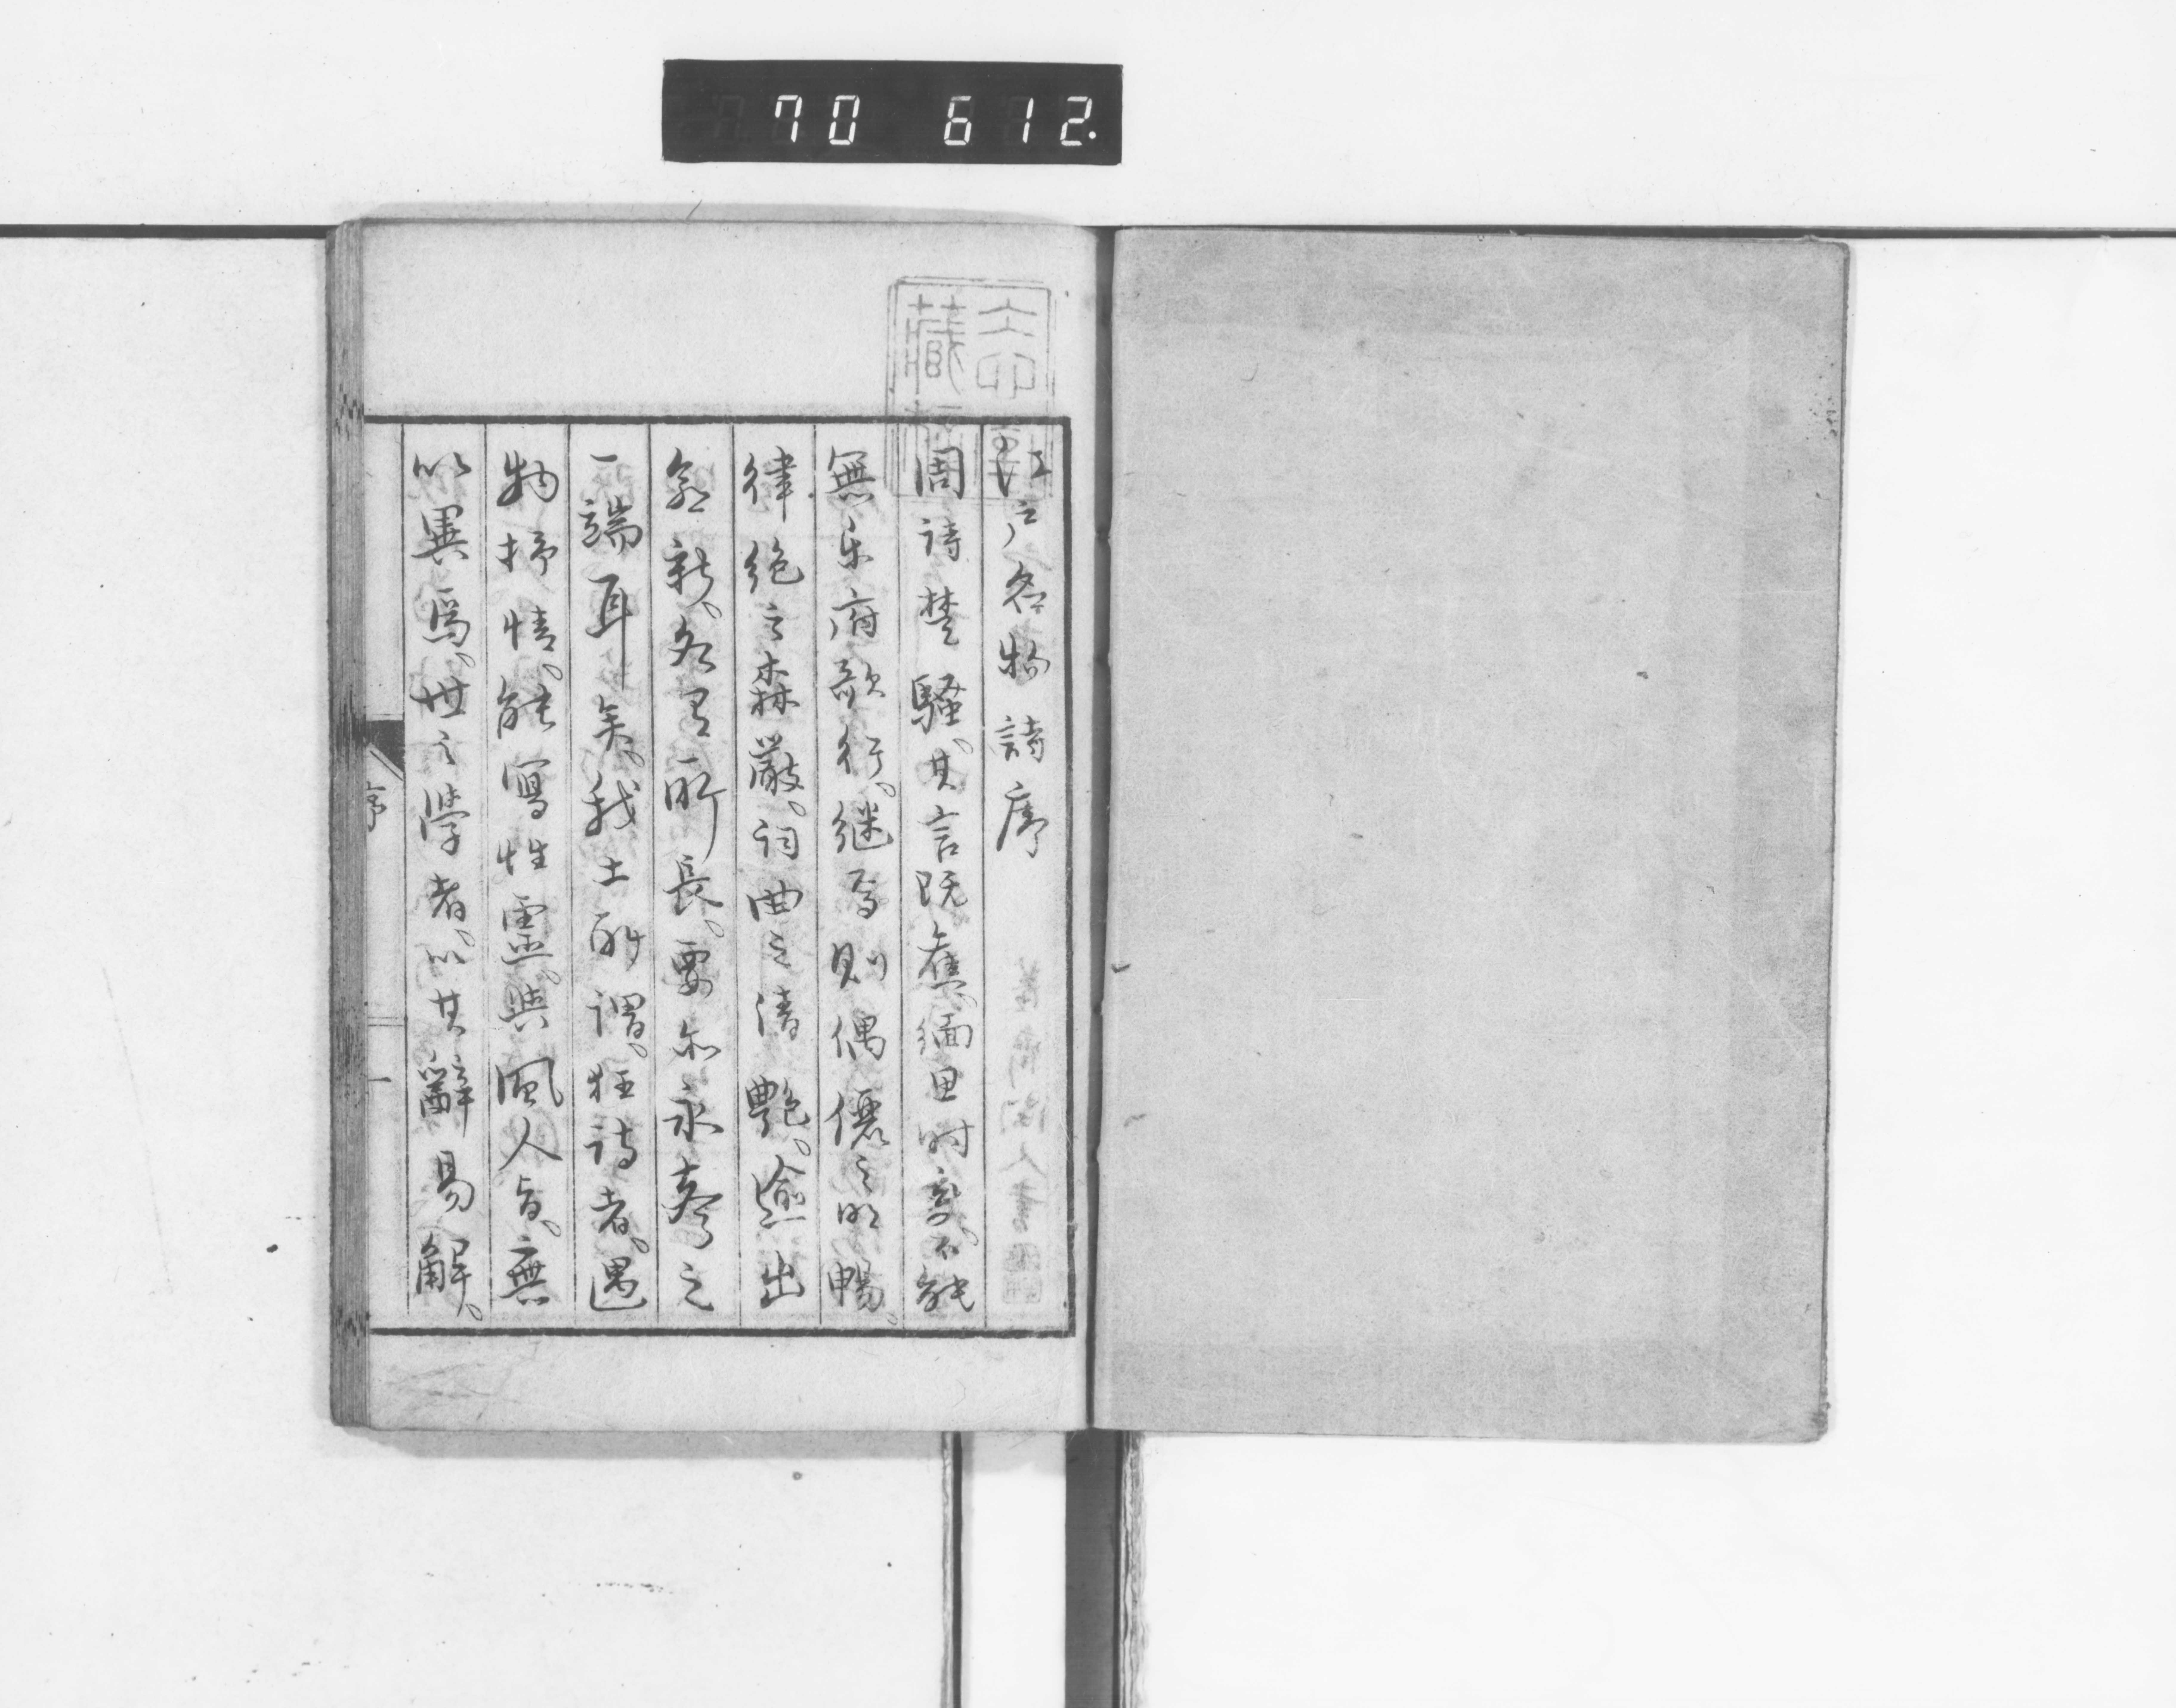 70 612.
江戸名物詩序
周詩楚騷。其言既舊。緬思時変。不能
無乐府歌行。継焉則偶儷之明暢。
律絶之森嚴。詞曲之清艶。逾出
逾新。各有所長。要亦永哥之
一端耳矣。我土所謂。狂詩者。遇
物抒情。能寫性靈。與風人旨。無
以異焉。世之學者。以其辭易解。
序
一